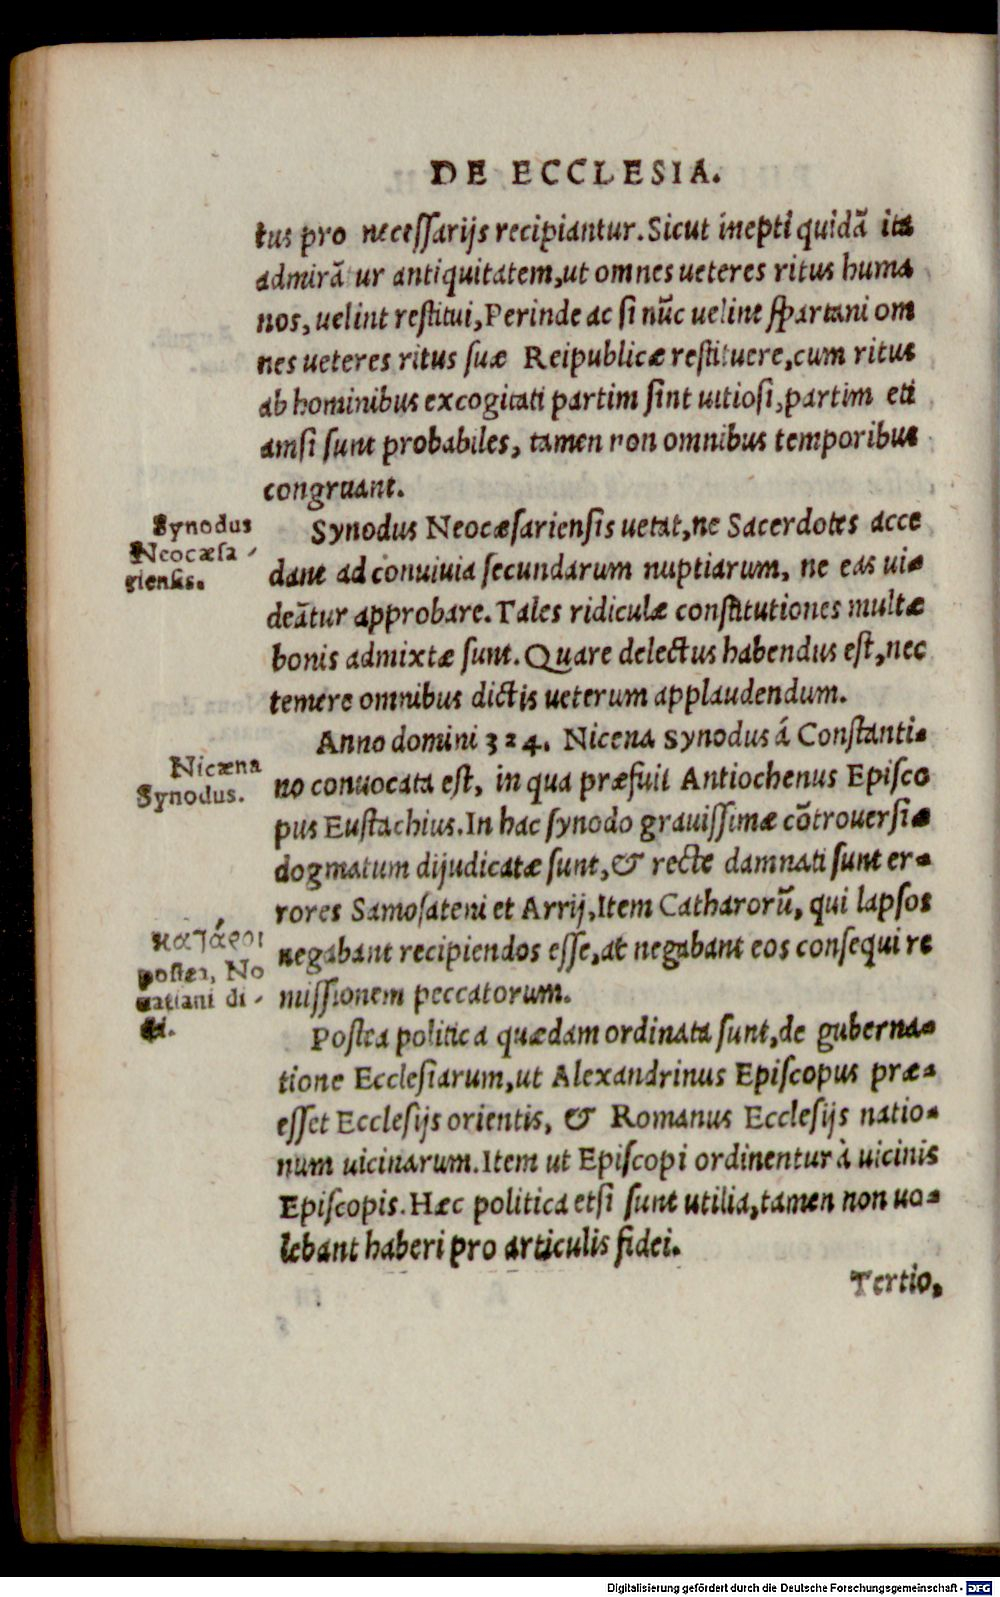 DE ECCLESIA.
tus pro necessarijs recipiantur. Sicut inepti quidã ita
admirãtur antiquitatem, ut omnes ueteres ritus huma
nos, uelint restitui, Perinde ac si nũc uelint Spartani om
nes ueteres ritus suæ Reipublicæ restituere, cum ritus
ab hominibus excogitati partim sint uitiosi, partim eti
amsi sunt probabiles, tamen non omnibus temporibus
congruant.
Synodus
Neocæsa-
riensis.
Synodus Neocæsariensis uetat, ne Sacerdotes acce
dant ad conuiuia secundarum nuptiarum, ne eas ui-
deãtur approbare. Tales ridiculæ constitutiones multæ
bonis admixtæ sunt. Quare delectus habendus est, nec
temere omnibus dictis ueterum applaudendum.
Nicæna
Synodus.
Anno domini 324. Nicena Synodus á Constanti-
no conuocata est, in qua præfuit Antiochenus Episco
pus Eustachius. In hac synodo grauissimæ cõtrouersiæ
dogmatum dijudicatæ sunt, & recte damnati sunt er-
rores Samosateni et Arrij, Item Catharorũ, qui lapsos
negabant recipiendos esse, at negabant eos consequi re
missionem peccatorum.
καθάροι
postea, No
uatiani di-
cti.
Postea politica quædam ordinata sunt, de guberna-
tione Ecclesiarum, ut Alexandrinus Episcopus præ-
esset Ecclesijs orientis, & Romanus Ecclesijs natio-
num uicinarum. Item ut Episcopi ordinentur à uicinis
Episcopis. Hæc politica etsi sunt utilia, tamen non uo-
lebant haberi pro articulis fidei.
Tertio,
Digitalisierung gefördert durch die Deutsche Forschungsgemeinschaft - DFG